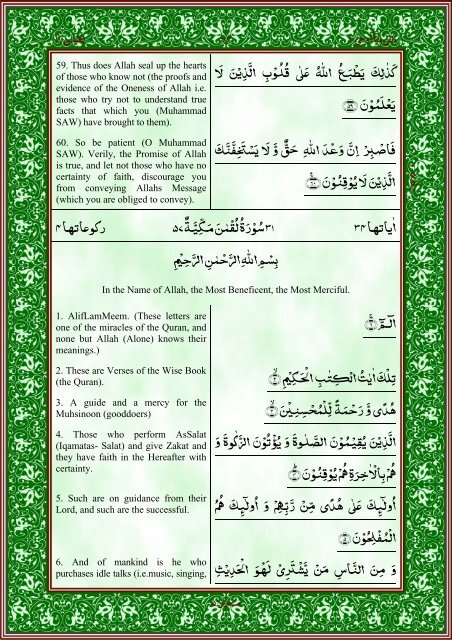 59. Thus does Allah seal up the hearts
of those who know not (the proofs and
evidence of the Oneness of Allah i.e.
those who try not to understand true
facts that which you (Muhammad
SAW) have brought to them).
كَذٰلِكَ يَطْبَعُ اللّٰهُ عَلٰى قُلُوْبِ الَّذِيْنَ لَا
يَعْلَمُوْنَ ﴿۵۹﴾
60. So be patient (O Muhammad
SAW). Verily, the Promise of Allah
is true, and let not those who have no
certainty of faith, discourage you
from conveying Allahs Message
(which you are obliged to convey).
فَاصْبِرْ اِنَّ وَعْدَ اللّٰهِ حَقٌّ وَّ لَا يَسْتَخِفَّنَّكَ
الَّذِيْنَ لَا يُوْقِنُوْنَ ﴿۶۰﴾
اٰیاتها ۳۴ ۳۱ سُوْرَةُ لُقْمٰنَ مَكِّيَّةٌ ۵۷ ركوعاتها ۴
بِسْمِ اللّٰهِ الرَّحْمٰنِ الرَّحِيْمِ
In the Name of Allah, the Most Beneficent, the Most Merciful.
1. AlifLamMeem. (These letters are
one of the miracles of the Quran, and
none but Allah (Alone) knows their
meanings.)
الٓـمّٓ ﴿۱﴾
2. These are Verses of the Wise Book
(the Quran).
تِلْكَ اٰيٰتُ الْكِتٰبِ الْحَكِيْمِ ﴿۲﴾
3. A guide and a mercy for the
Muhsinoon (gooddoers)
هُدًى وَّ رَحْمَةً لِّلْمُحْسِنِيْنَ ﴿۳﴾
4. Those who perform AsSalat
(Iqamatas- Salat) and give Zakat and
they have faith in the Hereafter with
certainty.
الَّذِيْنَ يُقِيْمُوْنَ الصَّلٰوةَ وَ يُؤْتُوْنَ الزَّكٰوةَ وَ
هُمْ بِالْاٰخِرَةِ هُمْ يُوْقِنُوْنَ ﴿۴﴾
5. Such are on guidance from their
Lord, and such are the successful.
اُولٰٓئِكَ عَلٰى هُدًى مِّنْ رَّبِّهِمْ وَ اُولٰٓئِكَ هُمُ
الْمُفْلِحُوْنَ ﴿۵﴾
6. And of mankind is he who
purchases idle talks (i.e.music, singing,
وَ مِنَ النَّاسِ مَنْ يَّشْتَرِيْ لَهْوَ الْحَدِيْثِ